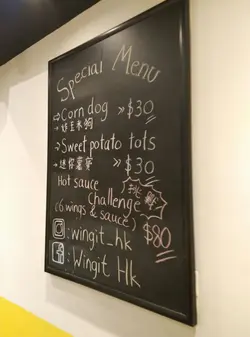 Special Menu
→Corn dog »$30
→ 粟米狗
→Sweet potato tots
→ 迷你薯寶 »$30
Hot sauce
Challenge 挑戰
(6 wings & sauce) $80
:wingit_hk
:Wingit Hk